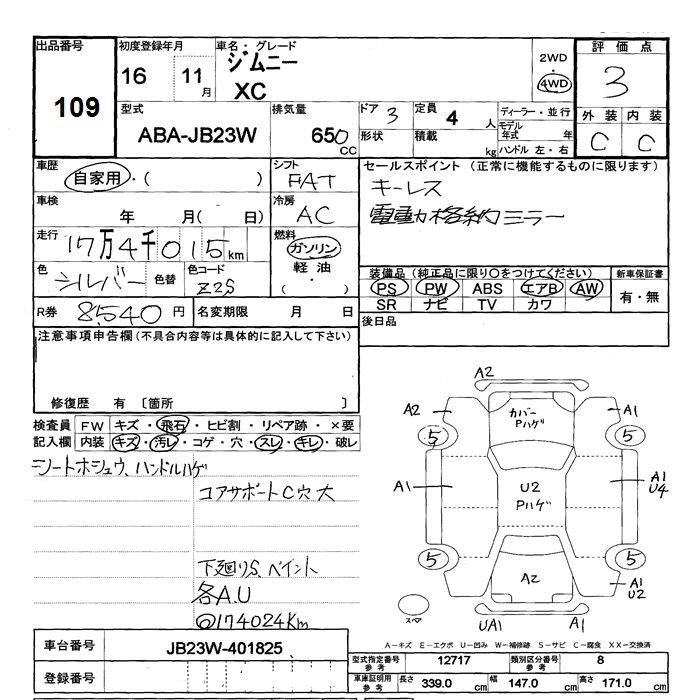 出品番号 初度登録年月 車名・グレード 評価点
109 16 11月 ジムニー XC 2WD・4WD 3
型式 排気量 ドア 3 定員 4人 ディーラー・並行 外装 内装
ABA-JB23W 650CC 形状 積載 kg モデル年式 年 C C
ハンドル 左・右
車歴 シフト セールスポイント (正常に機能するものに限ります)
自家用・( ) FAT キーレス
車検 年 月(日) 冷房 AC 電動格納ミラー
走行 17万4千015km 燃料 ガソリン
軽油・( )
色 シルバー 色替 色コード Z2S 装備品(純正品に限り〇をつけてください) 新車保証書
PS PW ABS エアB AW 有・無
SR ナビ TV カワ
R券 8,540円 名変期限 月 日 後日品
注意事項申告欄(不具合内容等は具体的に記入して下さい)
修復歴 有 〔箇所 〕
検査員 FW キズ・飛石・ヒビ割・リペア跡・×要
記入欄 内装 キズ・汚レ・コゲ・穴・スレ・キレ・破レ
シートホシュウ、ハンドルハゲ
コアサポートC穴大
下廻りS、ペイント
各A.U
◎174024Km
A2
A2 カバー Pハゲ A1
5 5
A1 U2 Pハゲ A1 U4
5 5
A2 A1 U2
スペア UA1 A1
A-キズ E-エクボ U-凹み W-補修跡 S-サビ C-腐食 XX-交換済
車台番号 JB23W-401825
型式指定番号 参考 12717 類別区分番号 参考 8
登録番号 車庫証明用 参考 長さ 339.0cm 幅 147.0cm 高さ 171.0cm